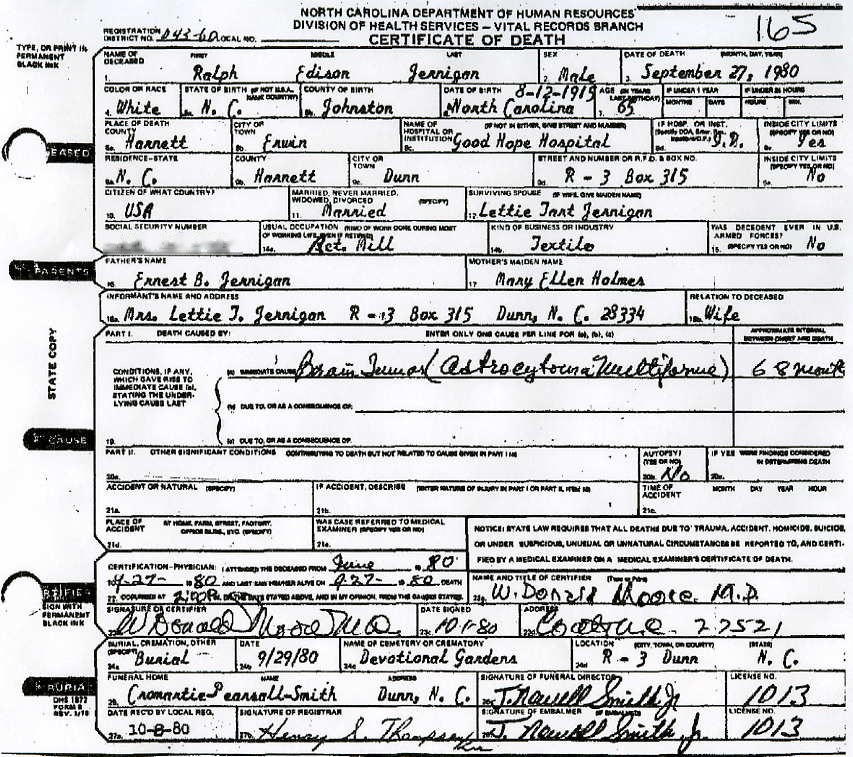 NORTH CAROLINA DEPARTMENT OF HUMAN RESOURCES
DIVISION OF HEALTH SERVICES - VITAL RECORDS BRANCH
CERTIFICATE OF DEATH
165
TYPE, OR PRINT IN PERMANENT BLACK INK
REGISTRATION DISTRICT NO. 043-60 LOCAL NO.
NAME OF DECEASED FIRST MIDDLE LAST SEX DATE OF DEATH (MONTH, DAY, YEAR)
1. Ralph Edison Jernigan 2. Male 3. September 27, 1980
COLOR OR RACE STATE OF BIRTH (IF NOT U.S.A., NAME COUNTRY) COUNTY OF BIRTH DATE OF BIRTH 8-12-1915 AGE (IN YEARS LAST BIRTHDAY) IF UNDER 1 YEAR IF UNDER 24 HOURS
4. White N. C. Johnston North Carolina 7. 65 MONTHS DAYS HOURS MIN.
PLACE OF DEATH COUNTY CITY OR TOWN NAME OF HOSPITAL OR INSTITUTION (IF NOT IN EITHER, GIVE STREET AND NUMBER) IF HOSP. OR INST. INSIDE CITY LIMITS (SPECIFY YES OR NO)
Harnett Erwin Good Hope Hospital Yes
RESIDENCE-STATE COUNTY CITY OR TOWN STREET AND NUMBER OR R.F.D. & BOX NO. INSIDE CITY LIMITS (SPECIFY YES OR NO)
9a. N. C. 9b. Harnett 9c. Dunn 9d. R - 3 Box 315 No
CITIZEN OF WHAT COUNTRY? MARRIED, NEVER MARRIED, WIDOWED, DIVORCED (SPECIFY) SURVIVING SPOUSE (IF WIFE, GIVE MAIDEN NAME)
10. USA 11. Married 12. Lettie Tart Jernigan
SOCIAL SECURITY NUMBER USUAL OCCUPATION (KIND OF WORK DONE DURING MOST OF WORKING LIFE, EVEN IF RETIRED) KIND OF BUSINESS OR INDUSTRY WAS DECEDENT EVER IN U.S. ARMED FORCES?
14a. Ret. Mill 14b. Textile 15. (SPECIFY YES OR NO) No
PARENTS
FATHER'S NAME MOTHER'S MAIDEN NAME
16. Ernest B. Jernigan 17. Mary Ellen Holmes
INFORMANT'S NAME AND ADDRESS RELATION TO DECEASED
18a. Mrs. Lettie T. Jernigan R - 3 Box 315 Dunn, N. C. 28334 18b. Wife
STATE COPY
PART I. DEATH CAUSED BY: ENTER ONLY ONE CAUSE PER LINE FOR (a), (b), (c) APPROXIMATE INTERVAL BETWEEN ONSET AND DEATH
CONDITIONS, IF ANY, WHICH GAVE RISE TO IMMEDIATE CAUSE (a), STATING THE UNDERLYING CAUSE LAST
(a) IMMEDIATE CAUSE Brain Tumor (Astrocytoma Multiforme)
(b) DUE TO, OR AS A CONSEQUENCE OF:
CAUSE
19. (c) DUE TO, OR AS A CONSEQUENCE OF:
PART II. OTHER SIGNIFICANT CONDITIONS CONTRIBUTING TO DEATH BUT NOT RELATED TO CAUSE GIVEN IN PART I (a) AUTOPSY? (YES OR NO) IF YES WERE FINDINGS CONSIDERED IN DETERMINING DEATH
20a. 20b. No 20c.
ACCIDENT OR NATURAL (SPECIFY) IF ACCIDENT, DESCRIBE (ENTER NATURE OF INJURY IN PART I OR PART II, ITEM 19) TIME OF ACCIDENT MONTH DAY YEAR HOUR
21a. 21b. 21c.
PLACE OF ACCIDENT AT HOME, FARM, STREET, FACTORY, OFFICE BLDG., ETC. (SPECIFY) WAS CASE REFERRED TO MEDICAL EXAMINER? (SPECIFY YES OR NO)
21d. 21e.
NOTICE: STATE LAW REQUIRES THAT ALL DEATHS DUE TO TRAUMA, ACCIDENT, HOMICIDE, SUICIDE, OR UNDER SUSPICIOUS, UNUSUAL OR UNNATURAL CIRCUMSTANCES BE REPORTED TO, AND CERTIFIED BY A MEDICAL EXAMINER ON A MEDICAL EXAMINER'S CERTIFICATE OF DEATH.
CERTIFICATION-PHYSICIAN: I ATTENDED THE DECEASED FROM June 19 80
TO 9-27- 19 80 AND LAST SAW HIM/HER ALIVE ON 9-27- 19 80 DEATH
22. OCCURRED AT 2:00 P.M. ON THE DATE STATED ABOVE, AND IN MY OPINION, FROM THE CAUSES STATED.
NAME AND TITLE OF CERTIFIER (Type or Print)
23a. W. Donald Moore M.D.
SIGN WITH PERMANENT BLACK INK
SIGNATURE OF CERTIFIER DATE SIGNED ADDRESS
W Donald Moore M.D. 23c. 10-1-80 23d. Coats N.C. 27521
BURIAL, CREMATION, OTHER (SPECIFY) DATE NAME OF CEMETERY OR CREMATORY LOCATION (CITY, TOWN, OR COUNTY) (STATE)
24a. Burial 24b. 9/29/80 24c. Devotional Gardens 24d. R - 3 Dunn N. C.
BURIAL
DHS 1872
FORM 8
FUNERAL HOME NAME ADDRESS SIGNATURE OF FUNERAL DIRECTOR LICENSE NO.
25. Cromartie-Pearsall-Smith Dunn, N. C. J. Newell Smith Jr 1013
DATE REC'D BY LOCAL REG. SIGNATURE OF REGISTRAR SIGNATURE OF EMBALMER LICENSE NO.
27a. 10-8-80 27b. Henry S. Thompson J. Newell Smith, Jr. 1013